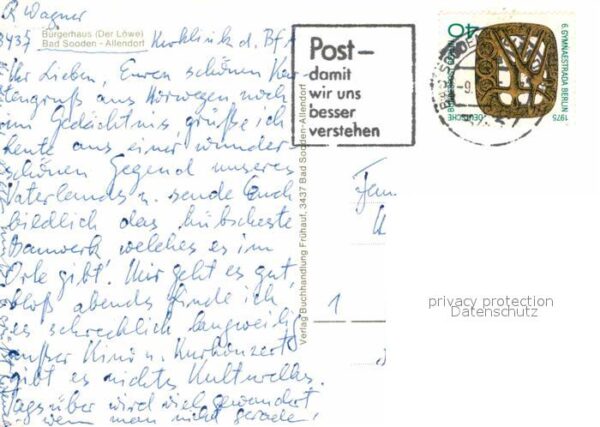 R Wagner
3437
Bürgerhaus (Der Löwe)
Bad Sooden - Allendorf
Kurklinik d. BfA
Ihr Lieben, Euren schönen Kar-
tengruß aus Norwegen noch
im Gedächtnis, grüße ich
heute aus einer wunder
schönen Gegend unseres
Vaterlandes u. sende Euch
bildlich das hübscheste
Bauwerk welches es im
Orte gibt. Mir geht es gut,
bloß abends finde ich
es schrecklich langweilig
außer Kino u. Kurkonzert
gibt es nichts Kulturelles.
Tagsüber wird viel gewandert
wenn man nicht gerade
Verlag Buchhandlung Frühauf, 3437 Bad Sooden-Allendorf
Post –
damit
wir uns
besser
verstehen
40
6. GYMNAESTRADA BERLIN
1975
DEUTSCHE BUNDESPOST BERLIN
Fam
1
privacy protection
Datenschutz